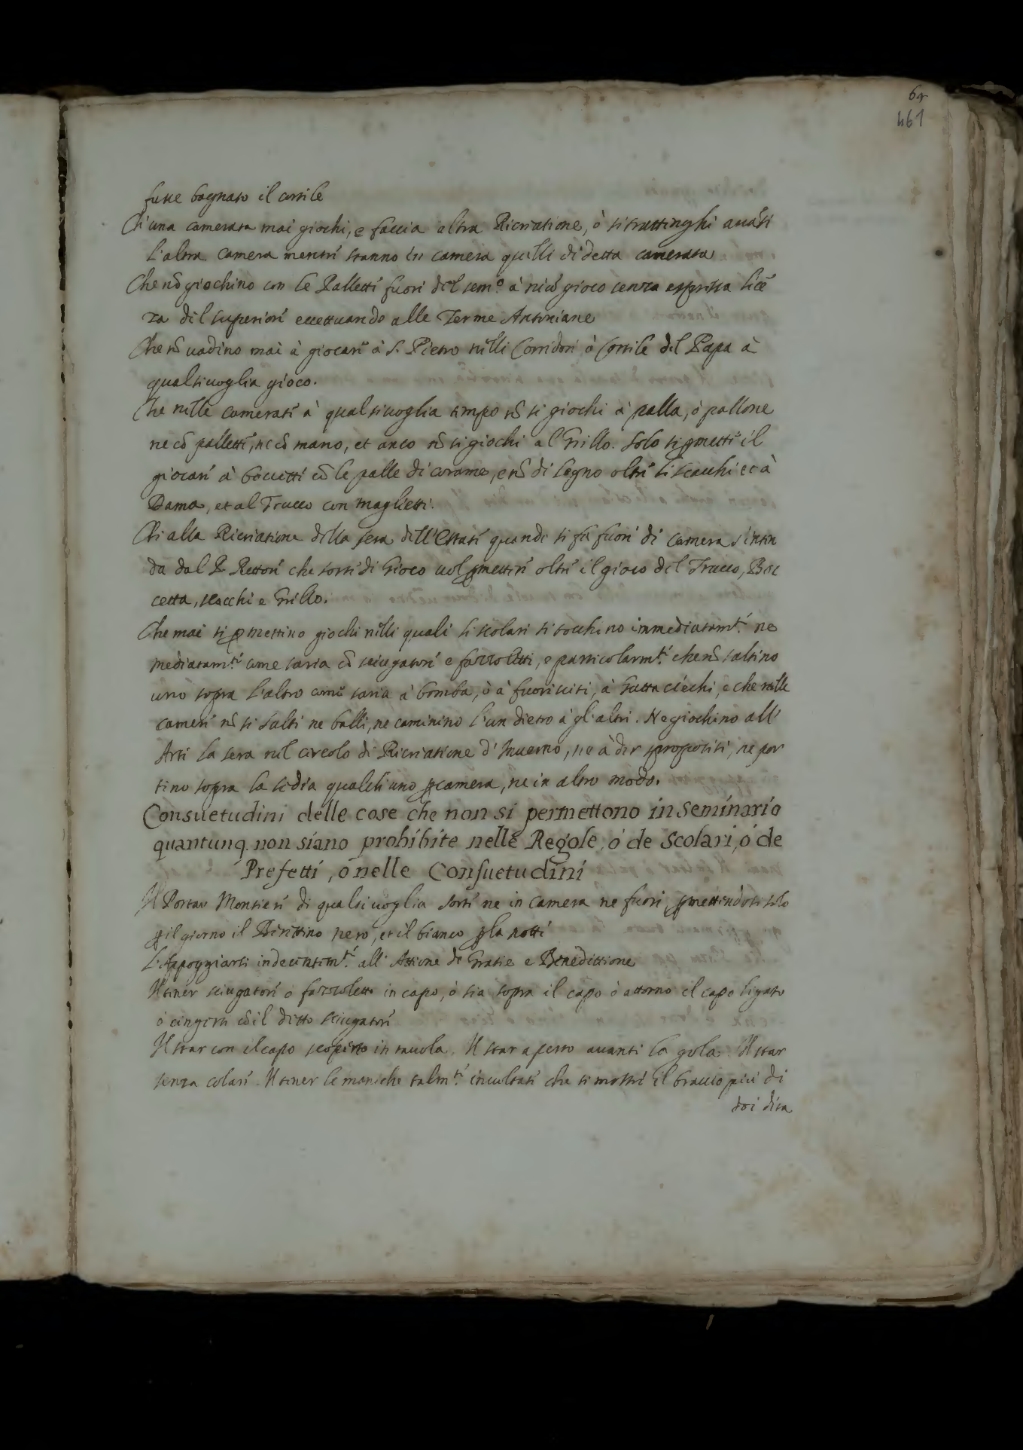 64
461
fusse bagnato il cortile
Ch'una camerata mai giochi, e faccia altra Ricriatione, ò si trattenghi auãti
l'altra camera mentri stanno in camera quelli di detta camerata
Che nõ giochino con le Palletti fuori del Sem.º à niũ gioco senza espressa licẽ
za del superiori eccettuando alle Terme Antoniane
Che nõ uadino mai à giocari à S. Pietro nelli Corridori, ò Cortile del Papa à
qualsiuoglia gioco.
Che nelle camerati à qualsiuoglia tempo nõ si giochi à palla, ò pallone
ne cõ palletti, ne cõ mano, et anco nõ si giochi al Grillo. Solo si ꝑmetti il
giocari à boccetti cõ le palle di corame, e nõ di legno oltri li scacchi et à
Dama, et al Trucco con maglietti.
Chi alla Ricriatione della sera dell'Estati quando si fà fuori di camera s'intẽ
da dal P. Rettori che sorti di Gioco uol ꝑmettiri oltri il gioco del Trucco, Boc
cetta, scacchi e Grillo.
Che mai si ꝑmettino giochi nelli quali li scolari si tocchino immediatam.ti ne
mediatam.ti come saria cõ sciugatori e fazzoletti, e particolarm.ti che nõ saltino
uno sopra l'altro comi saria à bomba, ò à fuorusciti, à Gatta ciechi, e che nelle
cameri nõ si salti ne balli, ne caminino l'un dietro à gl'altri. Ne giochino all'
Arti la sera nel circolo di Ricriatione d'Inuerno, ne à dir spropositi, ne por
tino sopra la sedia qualch'uno ꝑ camera, ne in altro modo.
Consuetudini delle cose che non si permettono in seminario
quantunq, non siano prohibite nelle Regole, ò de Scolari, ò de
Prefetti, ò nelle Consuetudini
Il Portar Montieri di qualsiuoglia sorti ne in camera ne fuori, ꝑmettẽdosi solo
ꝑ il giorno il Birittino nero, et il bianco ꝑ la notti
L'Appoggiarsi indecentem.ti all'Attione di Gratie e Benedittione
Il tiner sciugatori ò fazzoletti in capo, ò sia sopra il capo ò attorno il capo ligato
ò cingersi cõ il ditto sciugatori
Il star con el capo scoperto in tauola. Il star aperto auanti la gola. Il star
senza colari. Il tiner le maniche talm.ti incultati che si mostri il braccio più di
doi dita